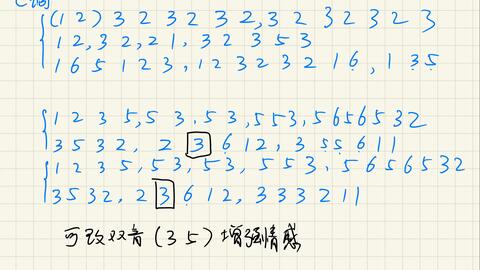 C调
(1 2) 3 2 3 2 3 2, 3 2 3 2 3 2 3
1 2, 3 2, 2 1, 3 2 3 5 3
1 6 5 1 2 3, 1 2 3 2 3 2 1 6̣, 1 3̣ 5̣
1 2 3 5, 5 3, 5 3, 5 5 3, 5 6 5 6 5 3 2
3 5 3 2, 2 3 6̣ 1 2, 3 5̣ 5̣ 6 1 1
1 2 3 5, 5 3, 5 3, 5 5 3, 5 6 5 6 5 3 2
3 5 3 2, 2 3 6̣ 1 2, 3 3 3 2 1 1
可改双音(3 5)增强情感